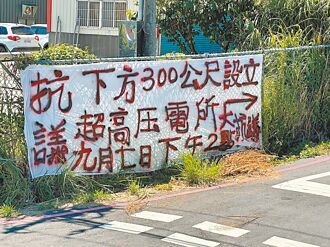 抗議
下方300公尺設立
超高压電所
九月七日下午2
大抗議